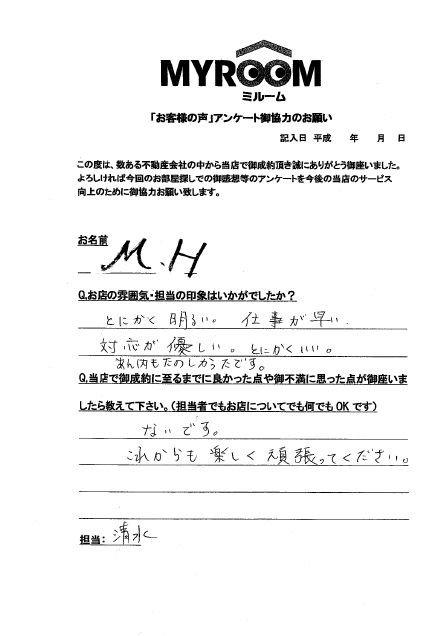 MYROOM
ミルーム
「お客様の声」アンケート御協力のお願い
記入日 平成　　年　　月　　日
この度は、数ある不動産会社の中から当店で御成約頂き誠にありがとう御座いました。
よろしければ今回のお部屋探しでの御感想等のアンケートを今後の当店のサービス
向上のために御協力お願い致します。
お名前
M.H
Q.お店の雰囲気・担当の印象はいかがでしたか？
とにかく明るい。仕事が早い.
対応が優しい。とにかくいい。
あん内もたのしかったです。
Q.当店で御成約に至るまでに良かった点や御不満に思った点が御座いま
したら教えて下さい。（担当者でもお店についてでも何でもOKです）
ないです。
これからも楽しく頑張ってください。
担当：清水